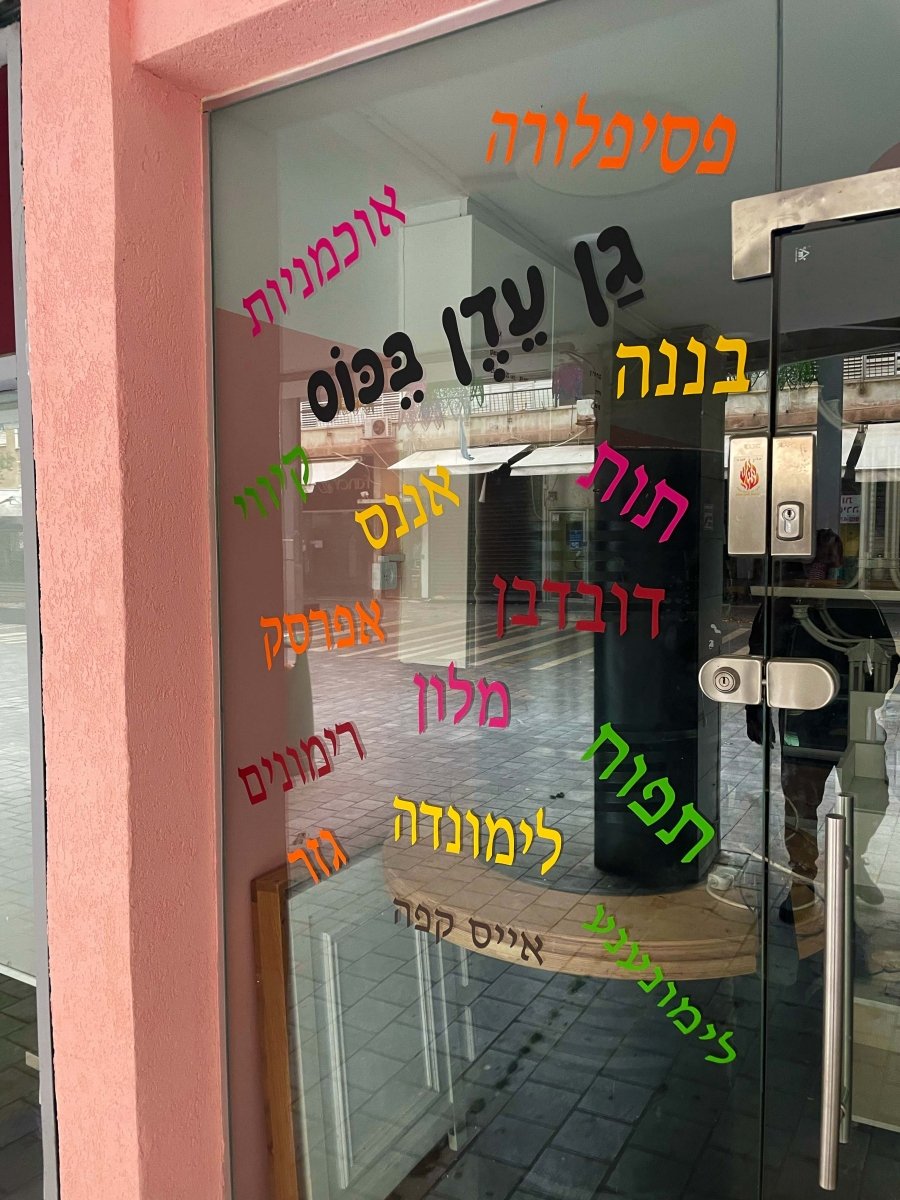 פסיפלורה
אוכמניות
גַן עֵדֶן בַּכּוֹס
בננה
תות
אננס
קיווי
דובדבן
אפרסק
מלון
תפוח
רימונים
לימונדה
גזר
אייס קפה
לימונענע